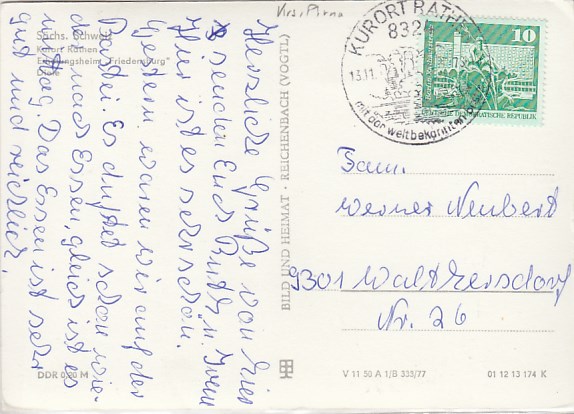 Krs. Pirna
Sächs. Schweiz
Kurort Rathen
Erholungsheim "Friedensburg"
Diele
Herzliche Grüße von hier
senden Euch Ruth u. Sven
Hier ist es sehr schön.
Gestern waren wir auf der
Bastei. Es duftet schon wie-
der nach Essen, gleich ist es
mittag. Das Essen ist sehr
gut und reichlich.
BILD UND HEIMAT · REICHENBACH (VOGTL)
KURORT RATHEN
832
13.11.
mit der weltbekannten
10
DEUTSCHE DEMOKRATISCHE REPUBLIK
Fam.
Werner Neubert
9301 Walthersdorf
Nr. 26
DDR 0,20 M
V 11 50 A 1/B 335/77
01 12 13 174 K